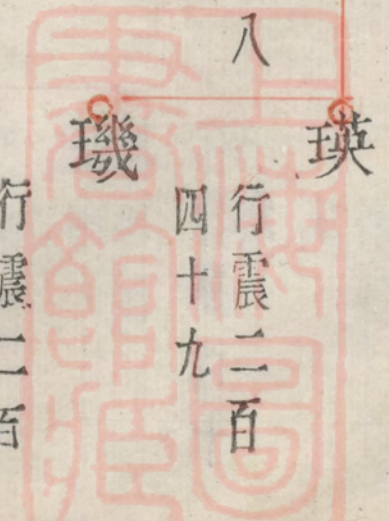 瑛
八
行震二百
四十九
璣
行震二百